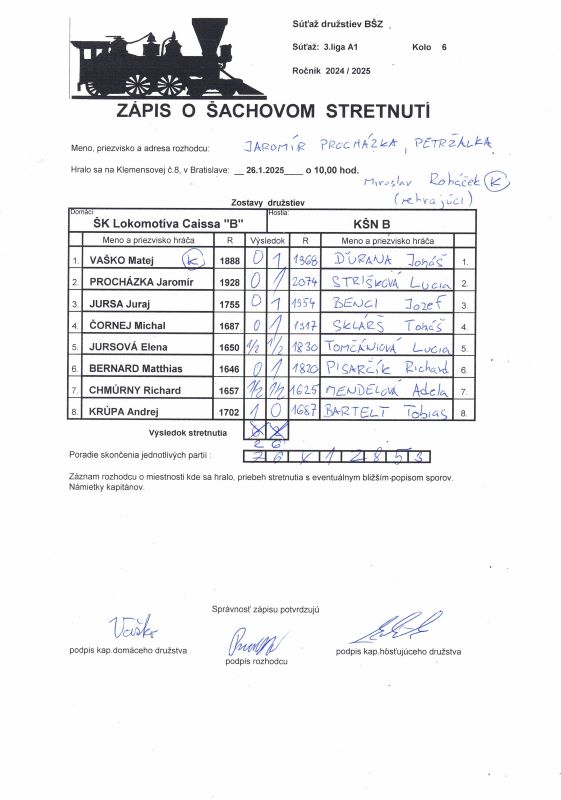 Súťaž družstiev BŠZ
Súťaž: 3.liga A1 Kolo 6
Ročník 2024 / 2025
ZÁPIS O ŠACHOVOM STRETNUTÍ
Meno, priezvisko a adresa rozhodcu: JAROMÍR PROCHÁZKA, PETRŽALKA
Hralo sa na Klemensovej č.8, v Bratislave: __ 26.1.2025____ o 10,00 hod.
Miroslav Roháček K
(nehrajúci)
Zostavy družstiev
Domáci: Hostia:
ŠK Lokomotíva Caissa "B" KŠN B
Meno a priezvisko hráča R Výsledok R Meno a priezvisko hráča
1. VAŠKO Matej K 1888 0 1 1968 ĎURANA Tomáš 1.
2. PROCHÁZKA Jaromír 1928 0 1 2074 STRIŠKOVÁ Lucia 2.
3. JURSA Juraj 1755 0 1 1954 BENCI Jozef 3.
4. ČORNEJ Michal 1687 0 1 1917 SKLÁRŠ Tomáš 4.
5. JURSOVÁ Elena 1650 1/2 1/2 1830 TOMČÁNIOVÁ Lucia 5.
6. BERNARD Matthias 1646 0 1 1820 PISARČÍK Richard 6.
7. CHMÚRNY Richard 1657 1/2 1/2 1625 MENDELOVÁ Adela 7.
8. KRÚPA Andrej 1702 1 0 1687 BARTELT Tobias 8.
Výsledok stretnutia
2 6
Poradie skončenia jednotlivých partií : 7 6 4 1 2 8 5 3
Záznam rozhodcu o miestnosti kde sa hralo, priebeh stretnutia s eventuálnym bližším popisom sporov.
Námietky kapitánov.
Správnosť zápisu potvrdzujú
Vaško
podpis kap.domáceho družstva
podpis rozhodcu
podpis kap.hosťujúceho družstva